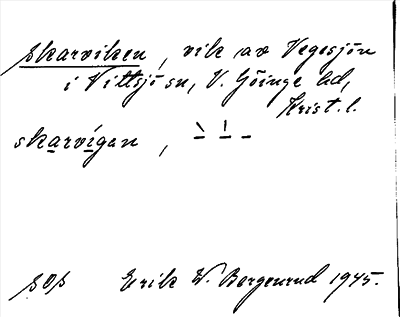 Skarviken, vik av Vegesjön
i Vittsjö sn, V. Göinge hd,
Krist. l.
skarvigan,
SOS Erik W. Bergenrud 1945.